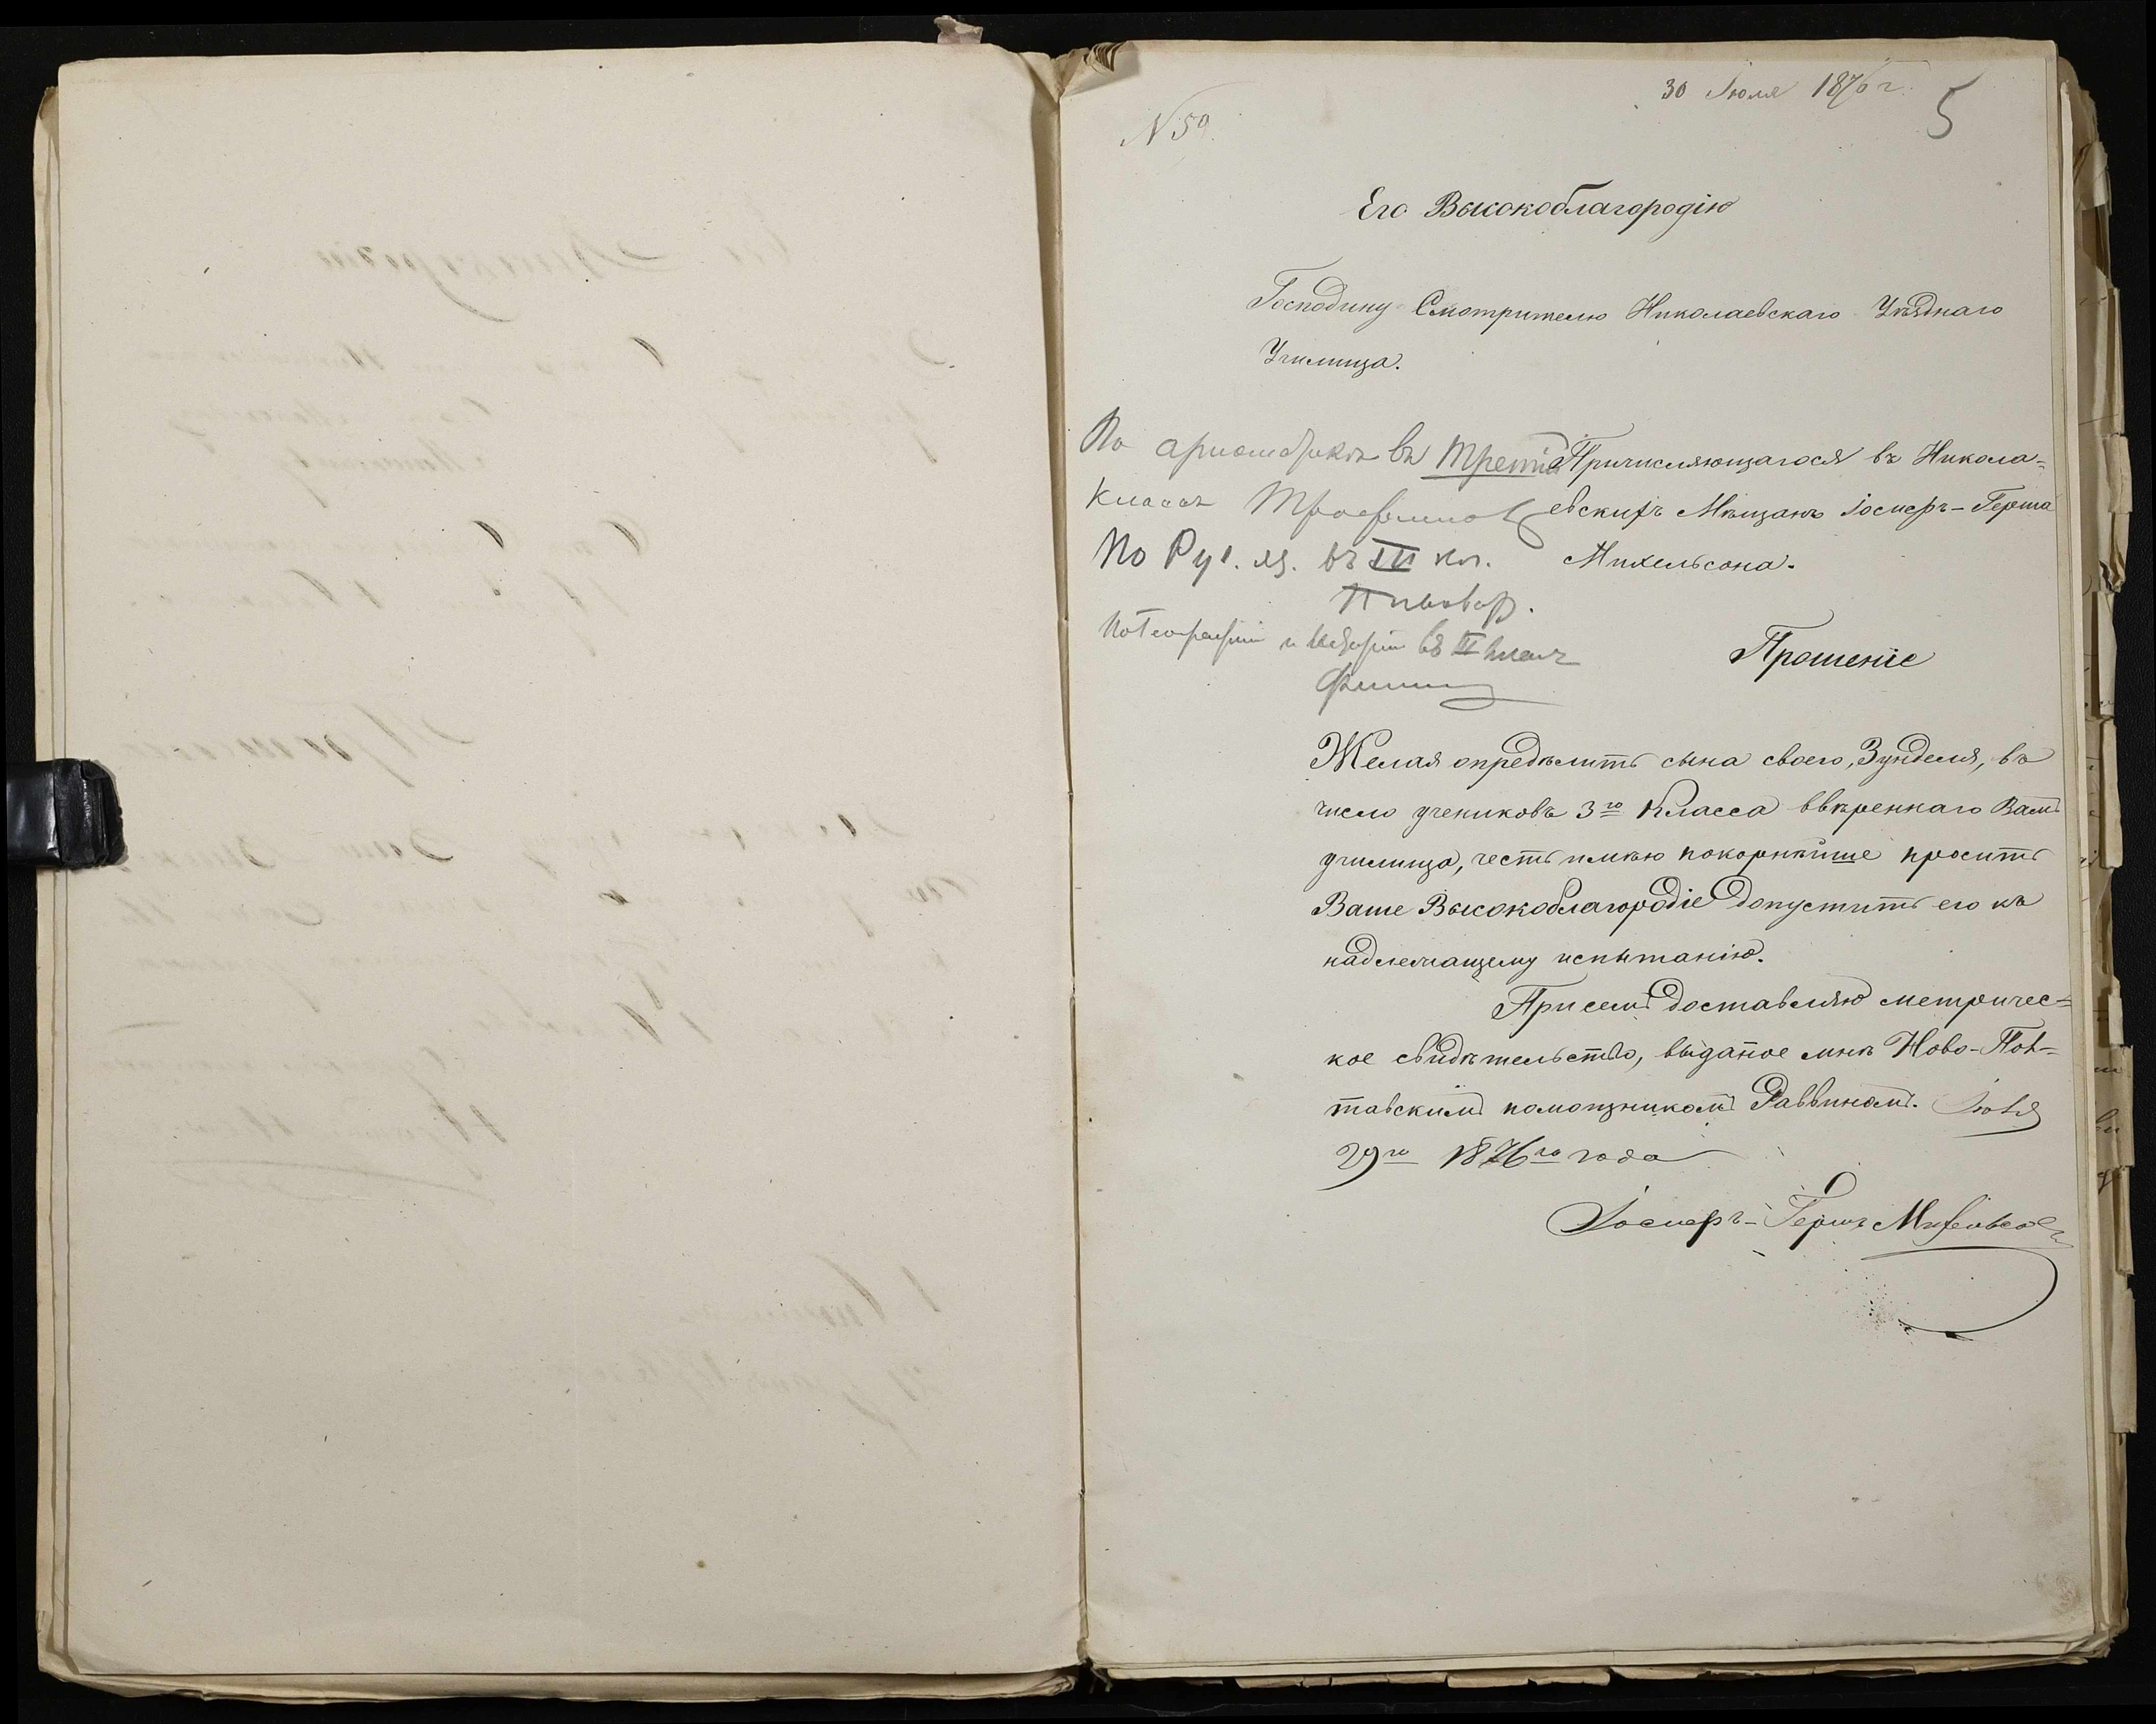 30 Іюля 1876 г.
5
N 59.
Его Высокоблагородію
Господину Смотрителю Николаевскаго Уѣзднаго
Училища.
Причисляющагося въ Никола=
евскихъ Мѣщанъ Іосифъ-Герша
Михельсона.
По ариѳметикѣ въ третій
классъ
По Рус. яз. въ III кл.
Пивовар.
По Географіи и Исторіи въ III классъ
Прошеніе
Желая опредѣлить сына своего, Зунделя, въ
число учениковъ 3го Класса ввѣреннаго Вамъ
училища, честь имѣю покорнѣйше просить
Ваше Высокоблагородіе допустить его къ
надлежащему испытанію.
При семъ доставляю метричес=
кое свидѣтельство, выданое мнѣ Ново-Пол=
тавскимъ помощникомъ Раввиномъ. Іюля
29го 1876го года
Іосифъ-Гершъ Михельсонъ